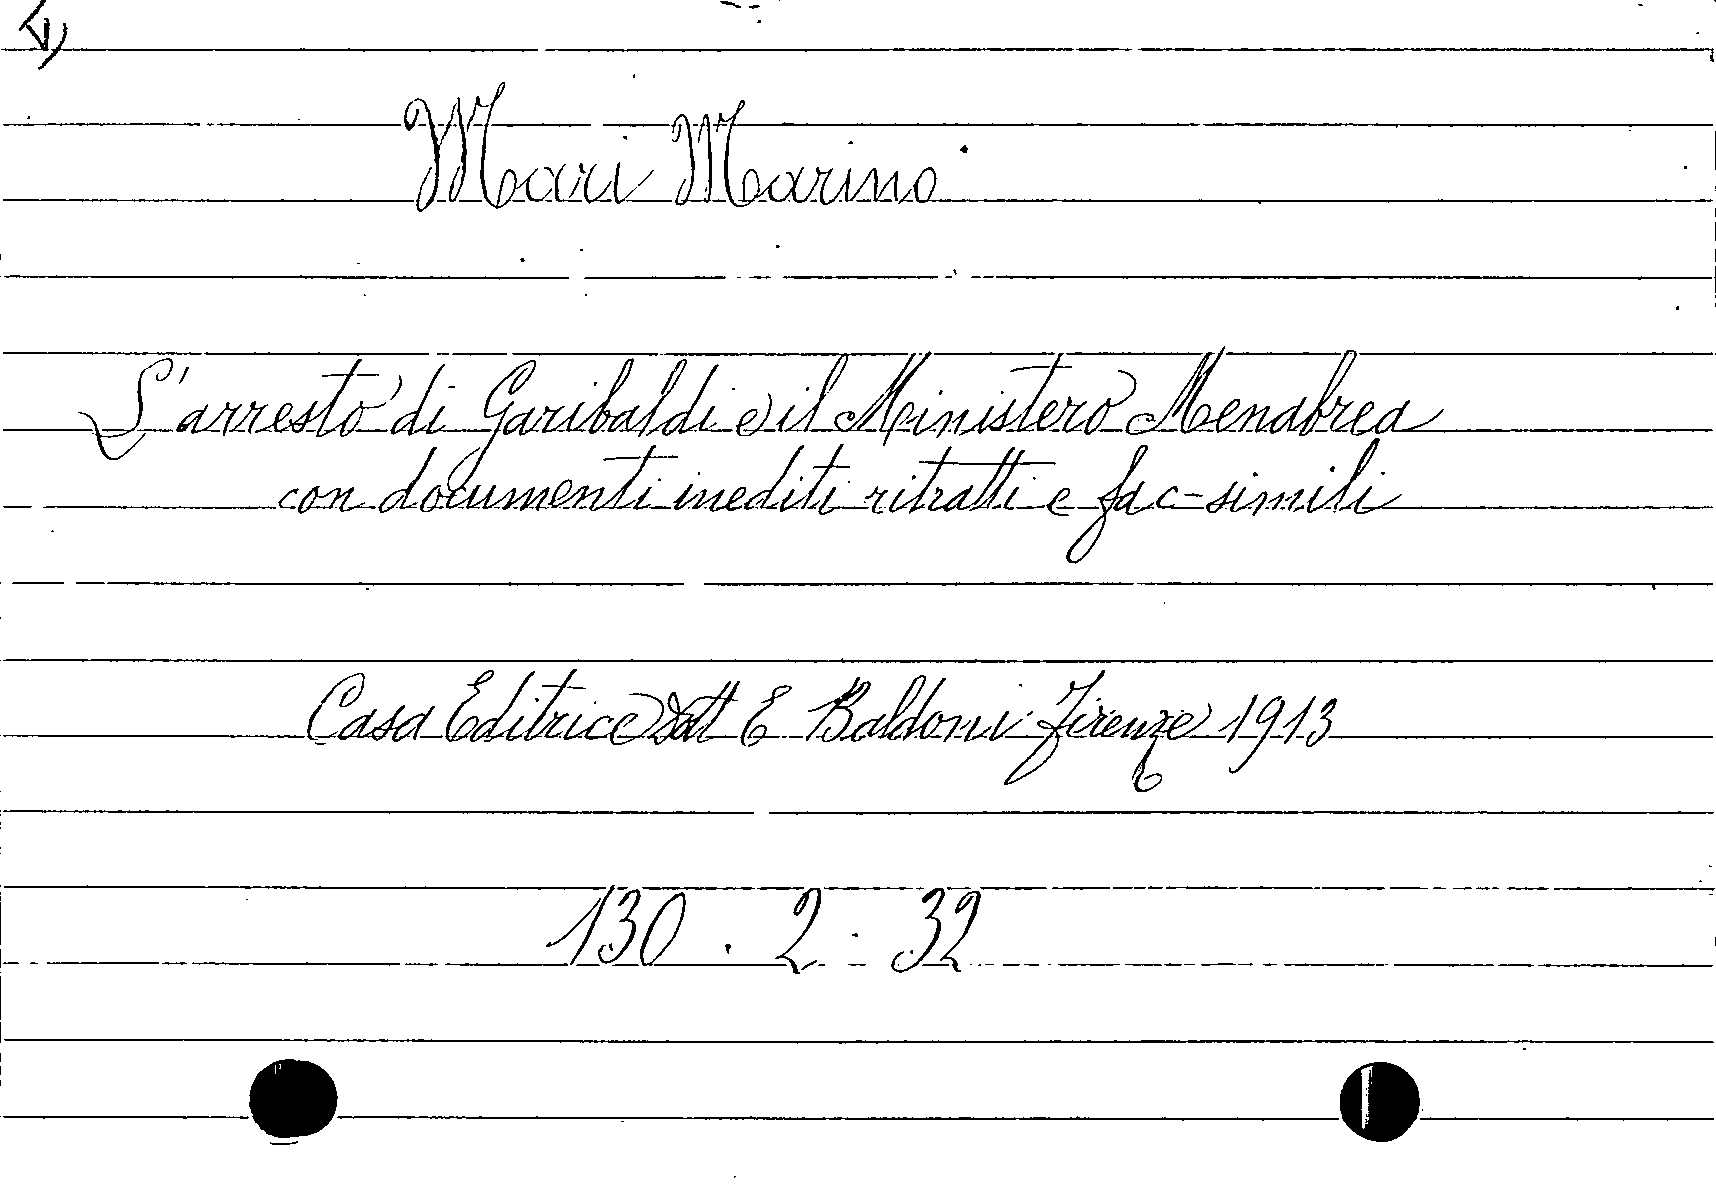 Mari Marino
L'arresto di Garibaldi e il Ministero Menabrea
con documenti inediti ritratti e fac-simili
Casa Editrice Dott E Baldoni Firenze 1913
130 . 2 . 32